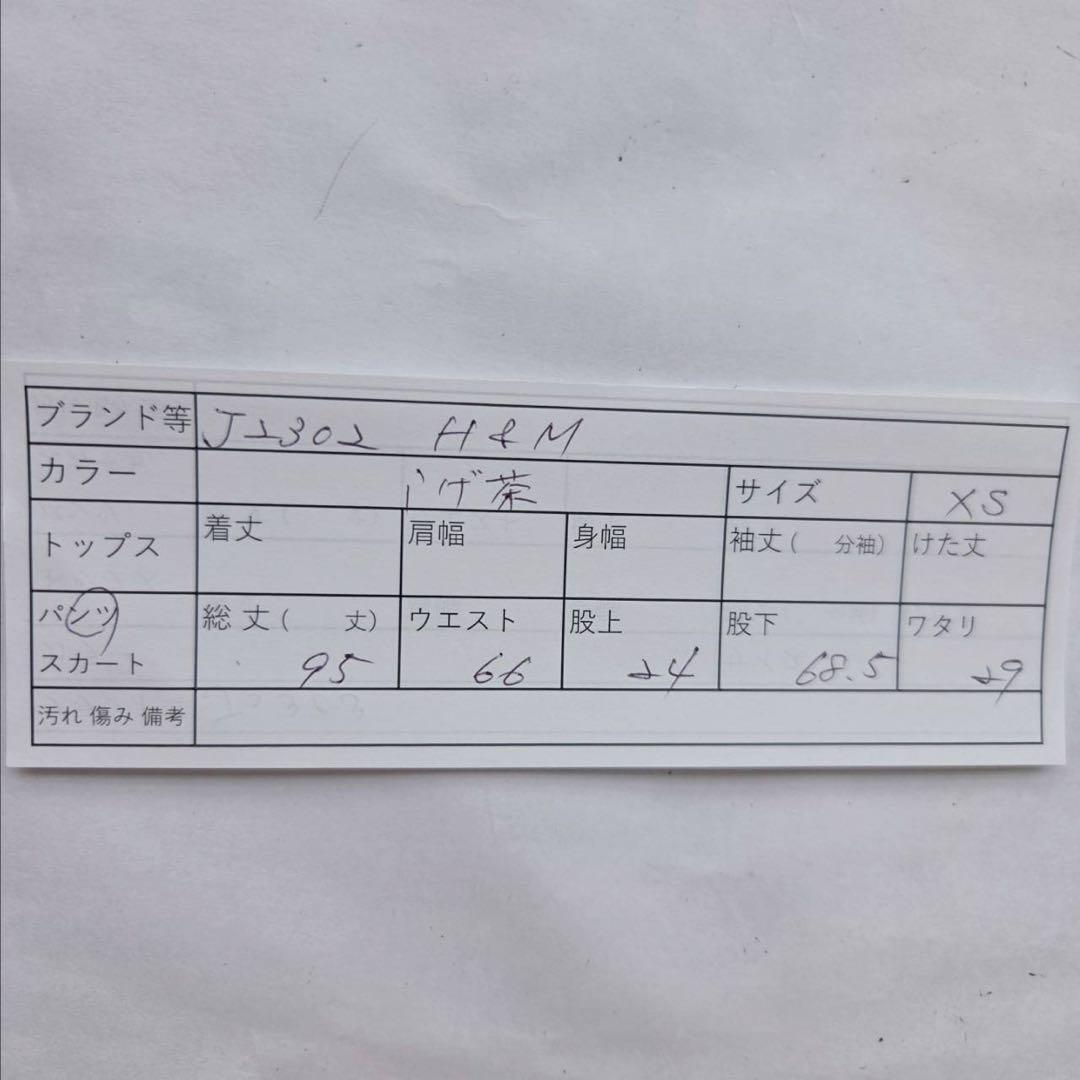 ブランド等 J2302 H&M
カラー こげ茶 サイズ XS
トップス 着丈 肩幅 身幅 袖丈( 分袖) けた丈
パンツ 総丈( 丈) ウエスト 股上 股下 ワタリ
スカート 95 66 24 68.5 29
汚れ 傷み 備考